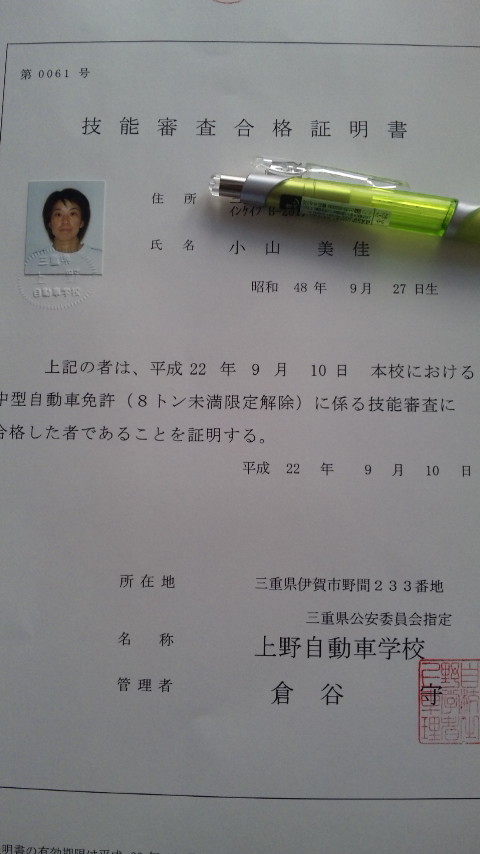 第 0061 号
技能審査合格証明書
住所
氏名 小山 美佳
昭和 48 年 9月 27 日生
上記の者は、平成 22 年 9 月 10 日 本校における
中型自動車免許（８トン未満限定解除）に係る技能審査に
合格した者であることを証明する。
平成 22 年 9 月 10 日
所在地 三重県伊賀市野間２３３番地
三重県公安委員会指定
名称 上野自動車学校
管理者 倉谷 守
三重県
自動車学校